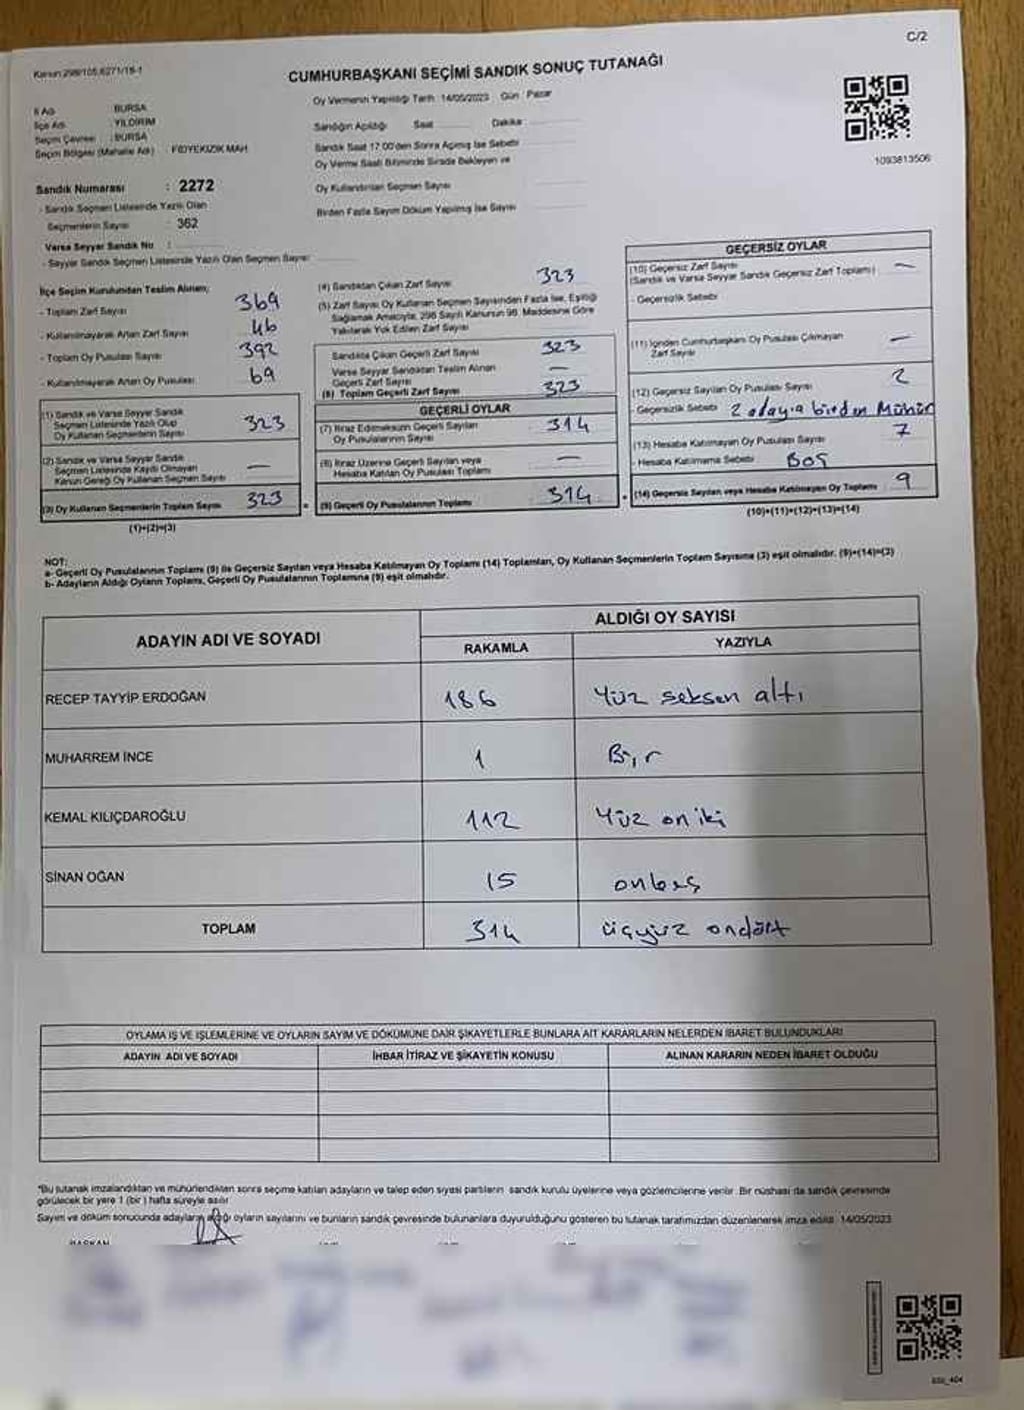 C/2
Kanun:298/105,6271/18-1
CUMHURBAŞKANI SEÇİMİ SANDIK SONUÇ TUTANAĞI
İl Adı : BURSA
İlçe Adı : YILDIRIM
Seçim Çevresi : BURSA
Seçim Bölgesi (Mahalle Adı) : FİDYEKIZIK MAH.
Sandık Numarası : 2272
- Sandık Seçmen Listesinde Yazılı Olan
Seçmenlerin Sayısı : 362
Varsa Seyyar Sandık No :
- Seyyar Sandık Seçmen Listesinde Yazılı Olan Seçmen Sayısı
Oy Vermenin Yapıldığı Tarih : 14/05/2023 Gün : Pazar
Sandığın Açıldığı Saat Dakika
Sandık Saat 17.00'den Sonra Açılmış İse Sebebi
Oy Verme Saati Bitiminde Sırada Bekleyen ve
Oy Kullandırılan Seçmen Sayısı
Birden Fazla Sayım Döküm Yapılmış İse Sayısı
1093813506
İlçe Seçim Kurulundan Teslim Alınan;
- Toplam Zarf Sayısı 369
- Kullanılmayarak Artan Zarf Sayısı 46
- Toplam Oy Pusulası Sayısı 392
- Kullanılmayarak Artan Oy Pusulası 69
(1) Sandık ve Varsa Seyyar Sandık
Seçmen Listesinde Yazılı Olup
Oy Kullanan Seçmenlerin Sayısı 323
(2) Sandık ve Varsa Seyyar Sandık
Seçmen Listesinde Kaydı Olmayan
Kanun Gereği Oy Kullanan Seçmen Sayısı —
(3) Oy Kullanan Seçmenlerin Toplam Sayısı 323
(1)+(2)=(3)
(4) Sandıktan Çıkan Zarf Sayısı 323
(5) Zarf Sayısı Oy Kullanan Seçmen Sayısından Fazla İse, Eşitliği
Sağlamak Amacıyla, 298 Sayılı Kanunun 98. Maddesine Göre
Yakılarak Yok Edilen Zarf Sayısı
Sandıkta Çıkan Geçerli Zarf Sayısı 323
Varsa Seyyar Sandıktan Teslim Alınan
Geçerli Zarf Sayısı —
(6) Toplam Geçerli Zarf Sayısı 323
GEÇERLİ OYLAR
(7) İtiraz Edilmeksizin Geçerli Sayılan
Oy Pusulalarının Sayısı 314
(8) İtiraz Üzerine Geçerli Sayılan veya
Hesaba Katılan Oy Pusulası Toplamı —
(9) Geçerli Oy Pusulalarının Toplamı 314
GEÇERSİZ OYLAR
(10) Geçersiz Zarf Sayısı
(Sandık ve Varsa Seyyar Sandık Geçersiz Zarf Toplamı) —
- Geçersizlik Sebebi
(11) İçinden Cumhurbaşkanı Oy Pusulası Çıkmayan
Zarf Sayısı —
(12) Geçersiz Sayılan Oy Pusulası Sayısı 2
- Geçersizlik Sebebi 2 adaya birden Mühür
(13) Hesaba Katılmayan Oy Pusulası Sayısı 7
- Hesaba Katılmama Sebebi BOŞ
(14) Geçersiz Sayılan veya Hesaba Katılmayan Oy Toplamı 9
(10)+(11)+(12)+(13)=(14)
NOT:
a- Geçerli Oy Pusulalarının Toplamı (9) ile Geçersiz Sayılan veya Hesaba Katılmayan Oy Toplamı (14) Toplamları, Oy Kullanan Seçmenlerin Toplam Sayısına (3) eşit olmalıdır. (9)+(14)=(3)
b- Adayların Aldığı Oyların Toplamı, Geçerli Oy Pusulalarının Toplamına (9) eşit olmalıdır.
ADAYIN ADI VE SOYADI ALDIĞI OY SAYISI
RAKAMLA YAZIYLA
RECEP TAYYİP ERDOĞAN 186 Yüz seksen altı
MUHARREM İNCE 1 Bir
KEMAL KILIÇDAROĞLU 112 Yüz on iki
SİNAN OĞAN 15 onbeş
TOPLAM 314 üçyüz ondört
OYLAMA İŞ VE İŞLEMLERİNE VE OYLARIN SAYIM VE DÖKÜMÜNE DAİR ŞİKAYETLERLE BUNLARA AİT KARARLARIN NELERDEN İBARET BULUNDUKLARI
ADAYIN ADI VE SOYADI İHBAR İTİRAZ VE ŞİKAYETİN KONUSU ALINAN KARARIN NEDEN İBARET OLDUĞU
*Bu tutanak imzalandıktan ve mühürlendikten sonra seçime katılan adayların ve talep eden siyasi partilerin sandık kurulu üyelerine veya gözlemcilerine verilir. Bir nüshası da sandık çevresinde
görülecek bir yere 1 (bir) hafta süreyle asılır.
Sayım ve döküm sonucunda adayların aldığı oyların sayılarını ve bunların sandık çevresinde bulunanlara duyurulduğunu gösteren bu tutanak tarafımızdan düzenlenerek imza edildi. 14/05/2023
BAŞKAN